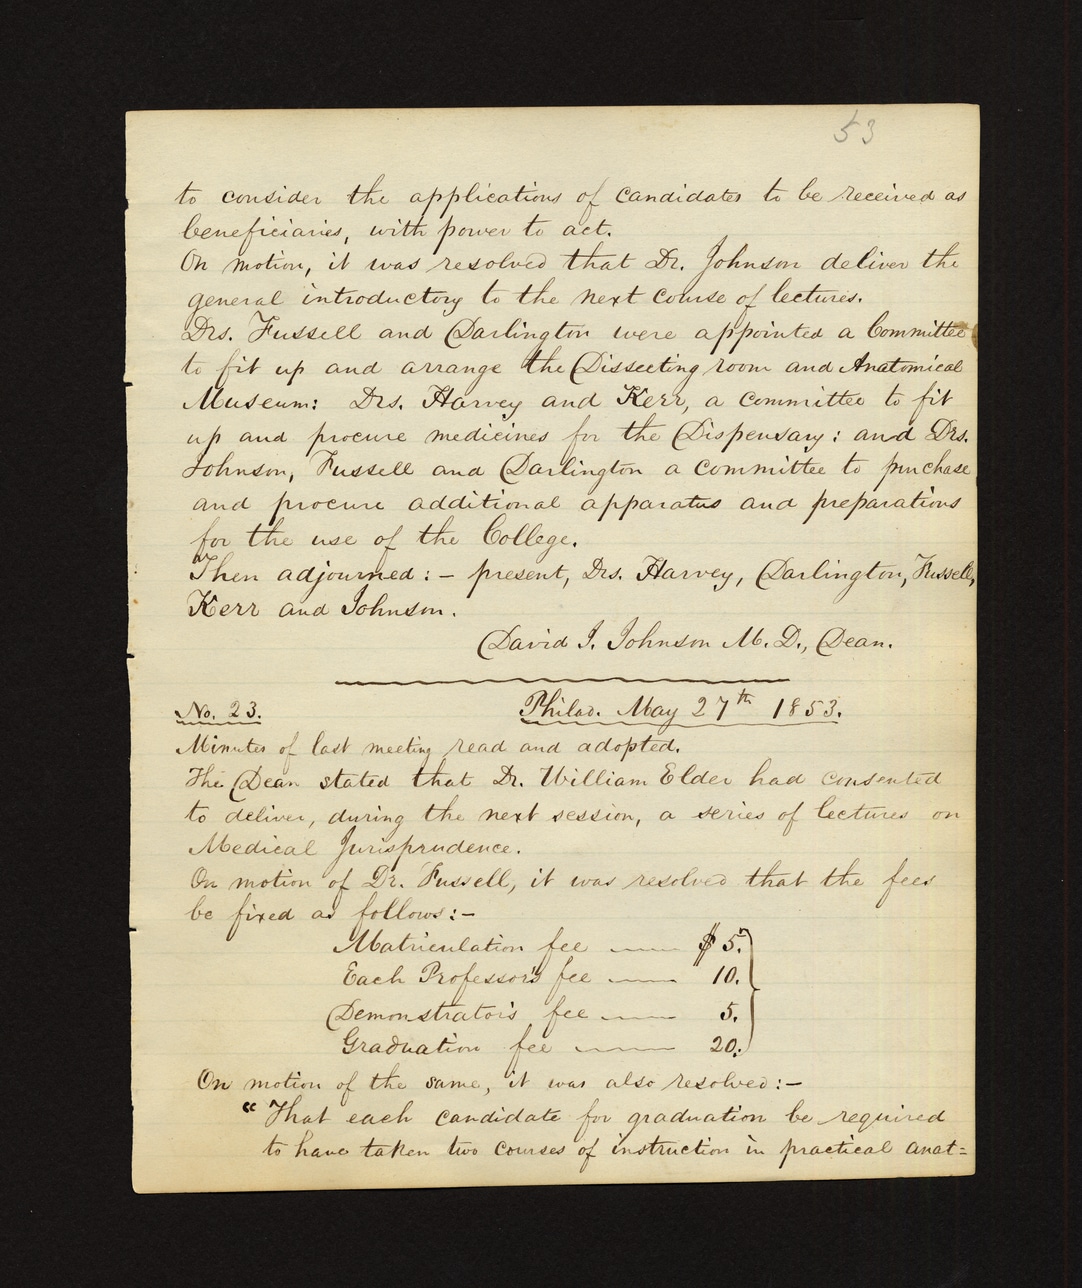 53
to consider the applications of candidates to be received as
beneficiaries, with power to act.
On motion, it was resolved that Dr. Johnson deliver the
general introductory to the next course of lectures.
Drs. Fussell and Darlington were appointed a Committee
to fit up and arrange the Dissecting room and Anatomical
Museum: Drs. Harvey and Kerr, a committee to fit
up and procure medicines for the Dispensary: and Drs.
Johnson, Fussell and Darlington a committee to purchase
and procure additional apparatus and preparations
for the use of the College.
Then adjourned:- present, Drs. Harvey, Darlington, Fussell,
Kerr and Johnson.
David J. Johnson M. D., Dean.
No. 23. Philad. May 27th 1853.
Minutes of last meeting read and adopted.
The Dean stated that Dr. William Elder had consented
to deliver, during the next session, a series of lectures on
Medical Jurisprudence.
On motion of Dr. Fussell, it was resolved that the fees
be fixed as follows:-
Matriculation fee —— $5.
Each Professor's fee —— 10.
Demonstrator's fee —— 5.
Graduation fee —— 20.
On motion of the same, it was also resolved:-
"That each candidate for graduation be required
to have taken two courses of instruction in practical anat=